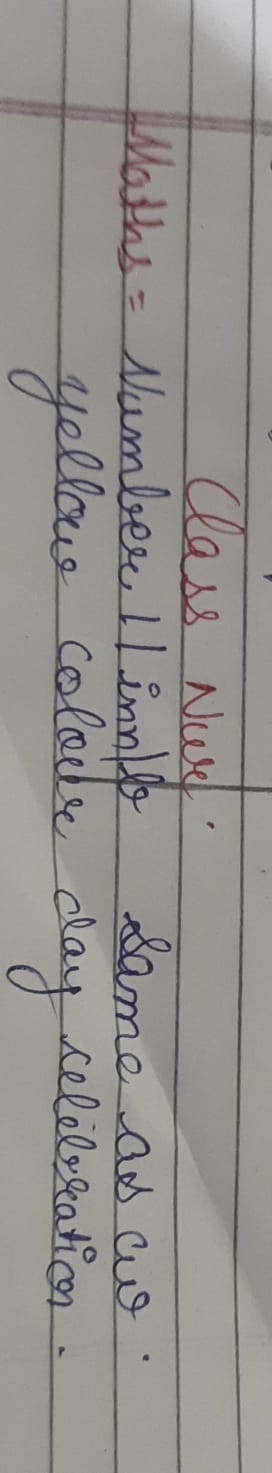 Class Nur.
Maths = Number 11 in n/b same as cw.
yellow colour day celebration.